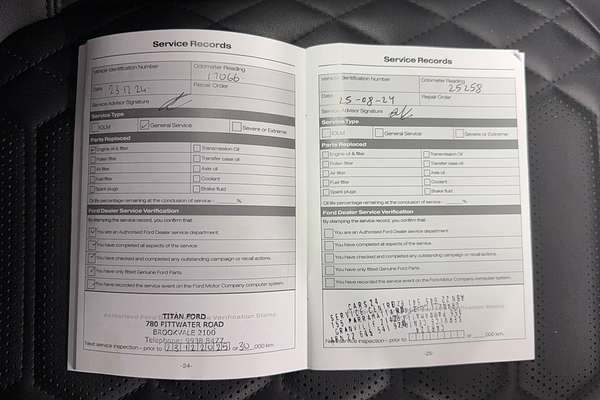 Service Records
Vehicle Identification Number
Odometer Reading
17066
Date 23.12.24
Repair Order
Service Advisor Signature
Service Type
IOLM
General Service
Severe or Extreme
Parts Replaced
Engine oil & filter
Transmission Oil
Pollen filter
Transfer case oil
Air filter
Axle oil
Fuel filter
Coolant
Spark plugs
Brake fluid
Oil life percentage remaining at the conclusion of service - %
Ford Dealer Service Verification
By stamping the service record, you confirm that:
You are an Authorised Ford Dealer service department.
You have completed all aspects of the service.
You have checked and completed any outstanding campaign or recall actions.
You have only fitted Genuine Ford Parts.
You have recorded the service event on the Ford Motor Company computer system.
TITAN FORD
780 PITTWATER ROAD
BROOKVALE 2100
Telephone: 9938 8477
Next service inspection - prior to 23122025 or 30,000 km.
-24-
Service Records
Vehicle Identification Number
Odometer Reading
25258
Date
Repair Order
Service Advisor Signature
Service Type
IOLM
General Service
Severe or Extreme
Parts Replaced
Engine oil & filter
Transmission Oil
Pollen filter
Transfer case oil
Air filter
Axle oil
Fuel filter
Coolant
Spark plugs
Brake fluid
Oil life percentage remaining at the conclusion of service - %
Ford Dealer Service Verification
By stamping the service record, you confirm that:
You are an Authorised Ford Dealer service department.
You have completed all aspects of the service.
You have checked and completed any outstanding campaign or recall actions.
You have only fitted Genuine Ford Parts.
You have recorded the service event on the Ford Motor Company computer system.
CARS24
SERVICE CENTRE
Next service inspection - prior to or ,000 km.
-25-